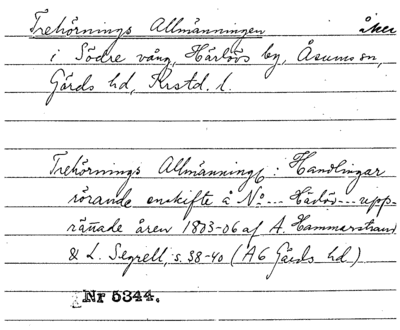 Trehörnings Allmänningen åker
i Södre vång, Härlövs by, Åsums sn,
Gärds hd, Krstd. l.
Trehörnings Allmänning: Handlingar
rörande enskifte å No --- Härlöv --- upp-
rättade åren 1803-06 af A. Hammarstrand
& L. Segrell, s. 38-40 (A6 Gärds hd.)
Nr 5344.